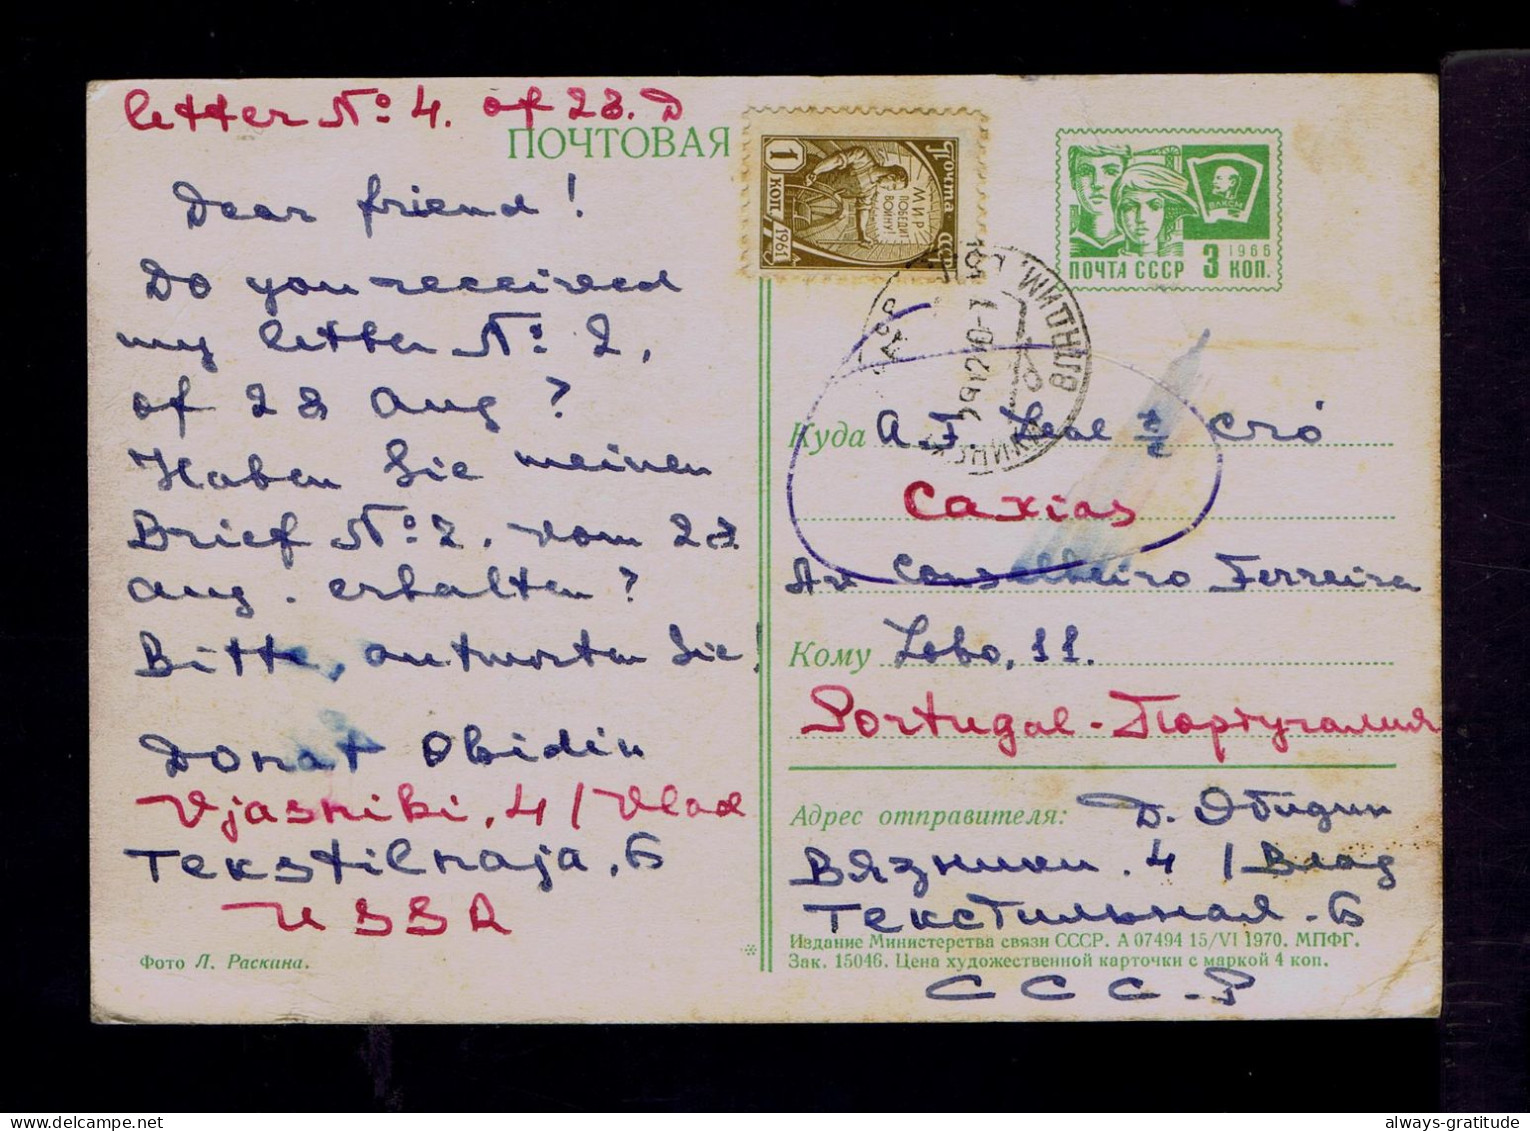 letter № 4. of 28. D
ПОЧТОВАЯ
Dear friend!
Do you received
my letter № 2,
of 28 Aug?
Haben Sie meinen
Brief № 2. vom 28
Aug. erhalten?
Bitte, antworten Sie!
Donat Obidin
Vjasniki, 4 / Vlad
Tekstilnaja, 6
USSR
Фото Л. Раскина.
1
КОП
1961
Почта СССР
МИР
ПОБЕДИТ
ВОЙНУ!
ВЛКСМ
1966
ПОЧТА СССР 3 КОП.
Куда A. F. Leal
Caxias
Av Conselheiro Ferreira
Кому Lobo, 11.
Portugal - Португалия
Адрес отправителя: Д. Обидин
Вязники. 4 / Влад
Текстильная - 6
Издание Министерства связи СССР. А 07494 15/VI 1970. МПФГ.
Зак. 15046. Цена художественной карточки с маркой 4 коп.
СССР
always-gratitude